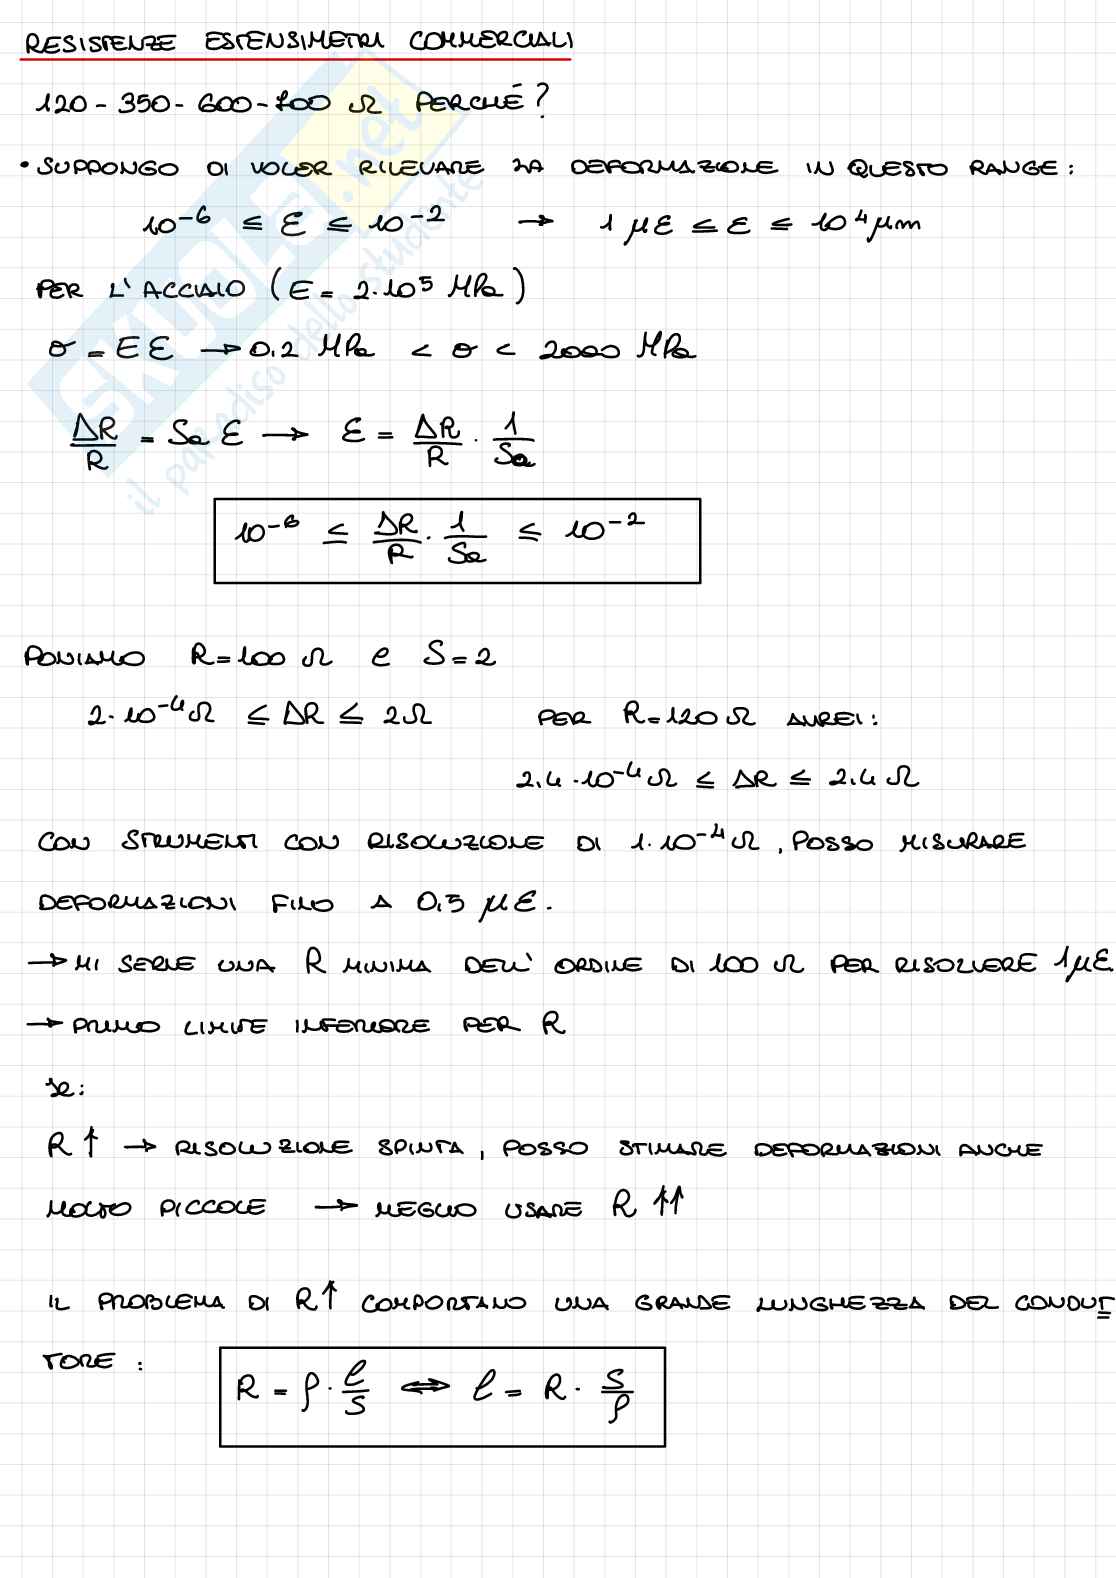 RESISTENZE ESTENSIMETRI COMMERCIALI
120 - 350 - 600 - 700 Ω PERCHÉ?
• SUPPONGO DI VOLER RILEVARE LA DEFORMAZIONE IN QUESTO RANGE:
10⁻⁶ ≤ ε ≤ 10⁻² → 1 με ≤ ε ≤ 10⁴ μm
PER L'ACCIAIO (E = 2·10⁵ MPa)
σ = Eε → 0.2 MPa < σ < 2000 MPa
ΔR/R = Sa ε → ε = ΔR/R · 1/Sa
10⁻⁶ ≤ ΔR/R · 1/Sa ≤ 10⁻²
PONIAMO R = 100 Ω e S = 2
2·10⁻⁴ Ω ≤ ΔR ≤ 2 Ω PER R = 120 Ω AVREI:
2.4·10⁻⁴ Ω ≤ ΔR ≤ 2.4 Ω
CON STRUMENTI CON RISOLUZIONE DI 1·10⁻⁴ Ω, POSSO MISURARE
DEFORMAZIONI FINO A 0,5 με.
→ MI SERVE UNA R MINIMA DELL' ORDINE DI 100 Ω PER RISOLVERE 1με
→ PRIMO LIMITE INFERIORE PER R
se:
R ↑ → RISOLUZIONE SPINTA, POSSO STIMARE DEFORMAZIONI ANCHE
MOLTO PICCOLE → MEGLIO USARE R ↑↑
IL PROBLEMA DI R↑ COMPORTANO UNA GRANDE LUNGHEZZA DEL CONDUT
TORE:
R = ρ · l/S ⟺ l = R · S/ρ
SKUOLA.net
il paradiso dello studente